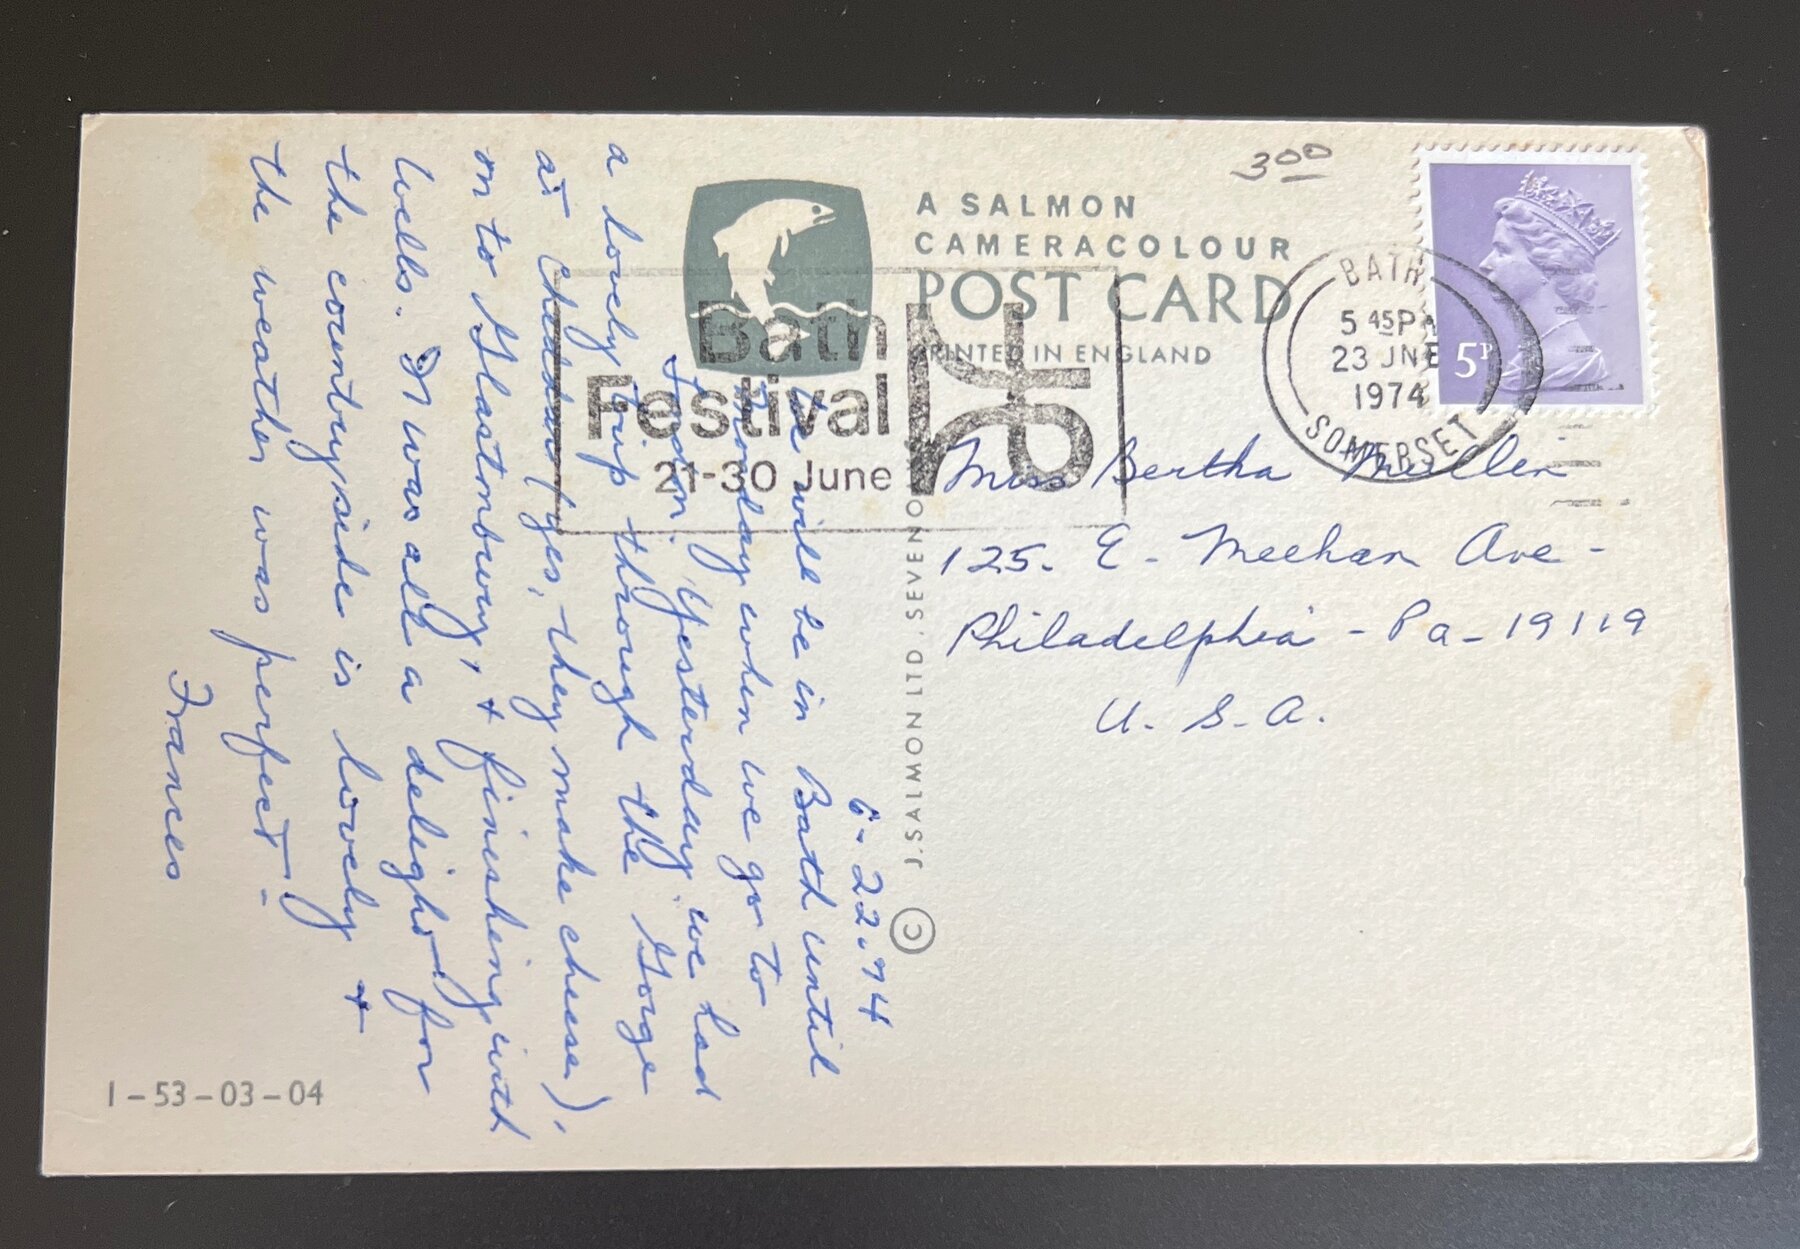 6-22-74
We will be in Bath until
Monday when we go to
London. Yesterday we had
a lovely trip through the Gorge
at Cheddar (yes, they make cheese),
on to Glastonbury, + finishing with
Wells. It was all a delight for
the countryside is lovely +
the weather was perfect -
Frances
1-53-03-04
A SALMON
CAMERACOLOUR
POST CARD
PRINTED IN ENGLAND
J. SALMON LTD. SEVENOAKS ©
Bath
Festival
21-30 June
3 00
BATH
5 45PM
23 JNE
1974
SOMERSET
5P
Miss Bertha Mullen
125. E. Meehan Ave -
Philadelphia - Pa - 19119
U. S. A.